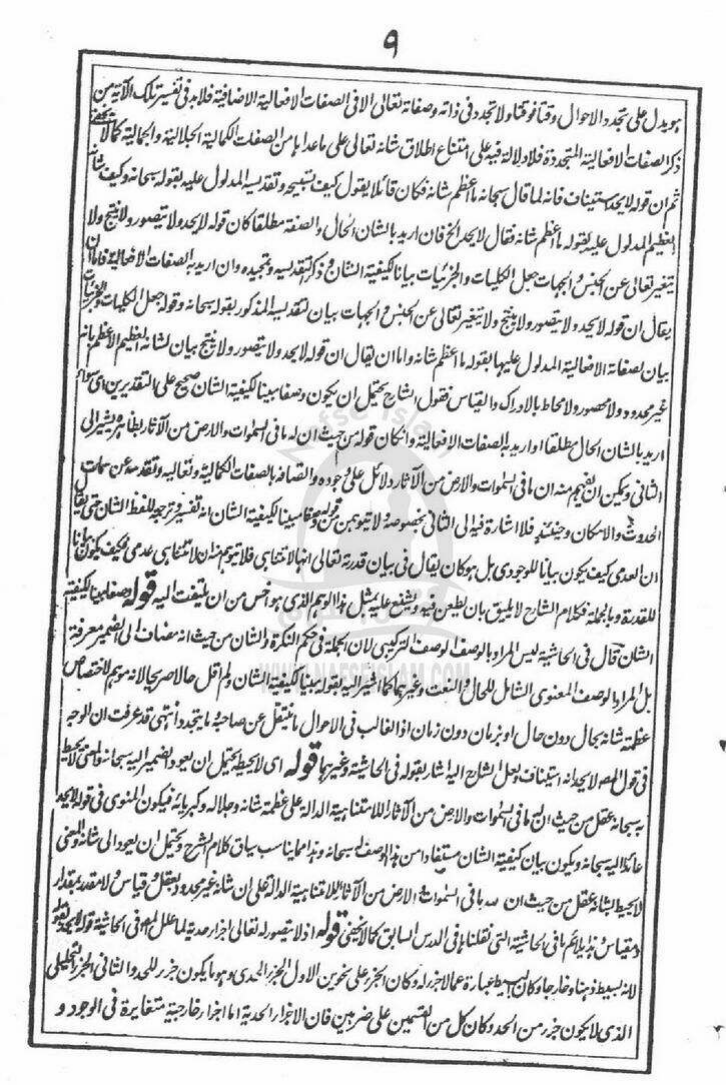 ٩
هو يدل على تجدد الاحوال وقتا فوقتا ولا تجدد فى ذاته وصفاته تعالى الا فى الصفات الافعالية الاضافية فلا بد فى تفسير تلك الآية من
ذكر الصفات الافعالية المتجددة فلا دلالة فيه على امتناع اطلاق شانه تعالى على ما عداها من الصفات الكمالية الجلالية والجمالية كما لا يخفى
ثم ان قوله لا يحد استيناف فانه لما قال سبحانه ما اعظم شانه فكان قائلا يقول كيف تسبيحه وتقديسه المدلول عليه بقوله سبحانه وكيف شانه
العظيم المدلول عليه بقوله ما اعظم شانه فقال لا يحد الخ فان اريد بالشان الحال والصفة مطلقا كان قوله لا يحد ولا يتصور ولا ينتج ولا
يتغير تعالى عن الجنس والجهات جعل الكليات والجزئيات بيانا لكيفية الشان وذكر لتقديسه وتمجيده وان اريد به الصفات الافعالية فاما ان
يقال ان قوله لا يحد ولا يتصور ولا ينتج ولا يتغير تعالى عن الجنس والجهات بيان لتقديسه المذكور بقوله سبحانه وقوله جعل الكليات والجزئيات
بيان لصفاته الافعالية المدلول عليها بقوله ما اعظم شانه واما ان يقال ان قوله لا يحد ولا يتصور ولا ينتج بيان لشانه العظيم الاعظم بانه
غير محدود ولا محصور ولا محاط بالادراك والقياس فقول الشارح يحتمل ان يكون وصفا مبينا لكيفية الشان صحيح على التقديرين اى سواء
اريد بالشان الحال مطلقا او اريد به الصفات الافعالية وان كان قوله من حيث ان له ما فى السموات والارض من الآثار بظاهره يشير الى
الثانى ويمكن ان يفهم منه ان ما فى السموات والارض من الآثار دلائل على وجوده واتصافه بالصفات الكمالية وتعاليه وتقدسه عن سمات
الحدوث والامكان وحينئذ فلا اشارة فيه الى الثانى بخصوصه ولا يتوهمن من قوله وصفا مبينا لكيفية الشان انه تفسير وترجمة للفظ الشان حتى يقال
ان العدمى كيف يكون بيانا للوجودى بل هو كان يقال فى بيان قدرته تعالى انها لا تتناهى فلا يتوهم منه ان لا تتناهى عدمى فكيف يكون بيانا
للقدرة وبالجملة فكلام الشارح لا يليق بان يطعن فيه ويشنع عليه بمثل هذا الوهم الذى هو اخس من ان يلتفت اليه قوله وصفا مبينا لكيفية
الشان قال فى الحاشية ليس المراد بالوصف الوصف التركيبى لان الجملة فى حكم النكرة والشان من حيث انه مضاف الى الضمير معرفة
بل المراد بالوصف المعنوى الشامل للحال والنعت وغيرهما كما اشير اليه بقوله مبينا لكيفية الشان ولم اقل حالا صريحا لانه موهم لاختصاص
عظمة شانه بحال دون حال او بزمان دون زمان اذ الغالب فى الاحوال ما ينتقل عن صاحبه ما يتجدد انتهى قد عرفت ان الوجه
فى قول المصـ لا يحد انه استيناف ولعل الشارح اليه اشار بقوله فى الحاشية وغيرهما قوله اى لا يحيط يحتمل ان يعود الضمير اليه سبحانه والمعنى لا يحيط
به سبحانه عقل من حيث ان له ما فى السموات والارض من الآثار اللامتناهية الدالة على عظمة شانه وجلاله وكبريائه فيكون المنوى فى قوله لا يحد
عائدا اليه سبحانه ويكون بيان كيفية الشان مستفادا من هذا الوصف له سبحانه وهذا مما يناسب سياق كلام الشرح ويحتمل ان يعود الى شانه والمعنى
لا يحيط بشانه عقل من حيث ان له ما فى السموات والارض من الآثار اللامتناهية الدالة على ان شانه غير محدود بعقل وقياس ولا مقدر بمقدار
ومقياس وهذا يلائم ما فى الحاشية التى نقلناها فى الدرس السابق كما لا يخفى قوله اذ لا يتصور له تعالى اجزاء حدية لما علل المصـ فى الحاشية قوله لا يحد بقوله
لانه بسيط ذهنا وخارجا وكان البسيط عبارة عما لا جزء له وكان الجزء على نحوين الاول الجزء الحدى وهو ما يكون جزء للحد والثانى الجزء التحليلى
الذى لا يكون جزء من الحد وكان كل من القسمين على ضربين فان الاجزاء الحدية اما اجزاء خارجية متغايرة فى الوجود و
Nafse Islam
WWW.NAFSEISLAM.COM